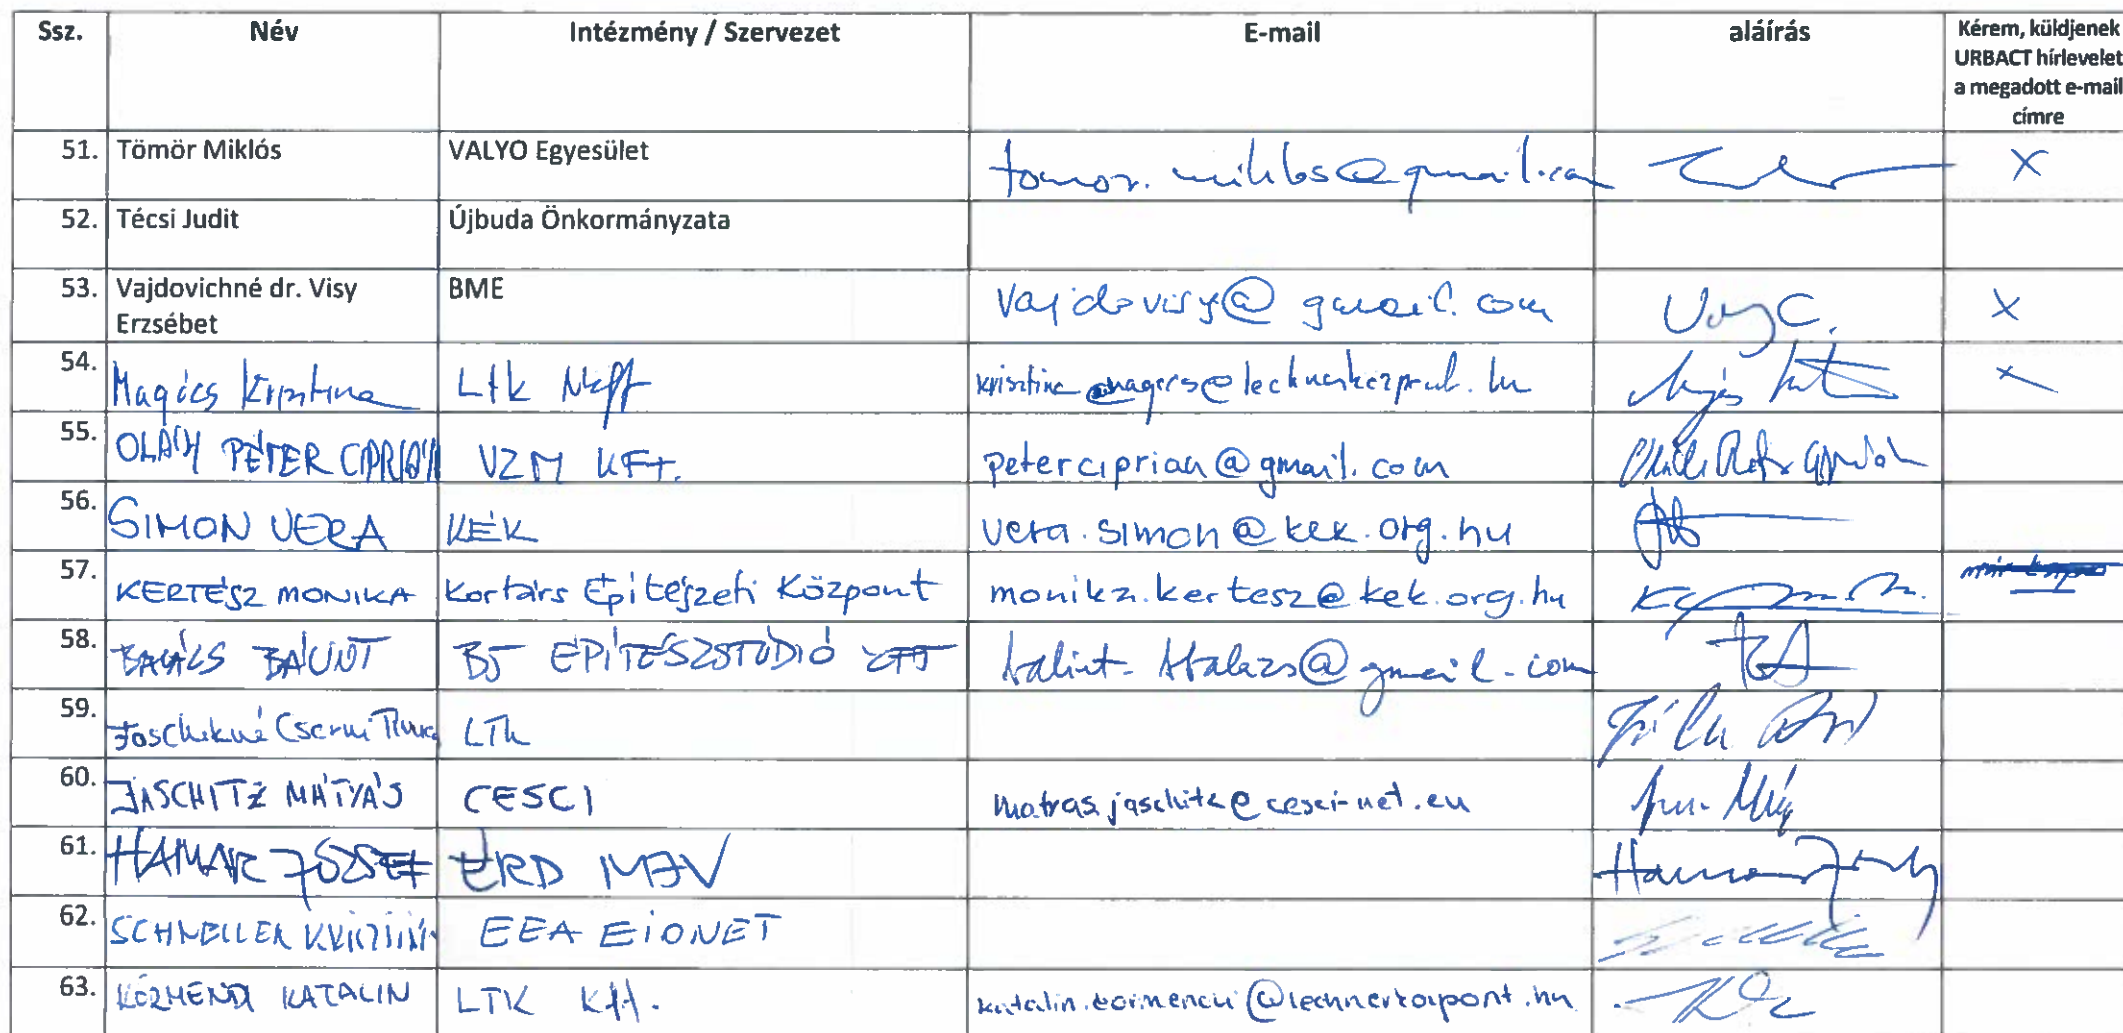 Ssz. Név Intézmény / Szervezet E-mail aláírás Kérem, küldjenek
URBACT hírlevelet
a megadott e-mail
címre
51. Tömör Miklós VALYO Egyesület tomor.miklos@gmail.com X
52. Técsi Judit Újbuda Önkormányzata
53. Vajdovichné dr. Visy BME vajdovisy@gmail.com X
Erzsébet
54. Magócs Krisztina Ltk X
55. OLÁH PÉTER CIPRIÁN VZM KFT. peterciprian@gmail.com
56. SIMON VERA KÉK vera.simon@kek.org.hu
57. KERTÉSZ MONIKA Kortárs Építészeti Központ monika.kertesz@kek.org.hu
58. BÁLINT ÉPÍTÉSZSTÚDIÓ
59. LTK
60. JASCHITZ MÁTYÁS CESCI matyas.jaschitz@cesci-net.eu
61. HAMAR JÓZSEF ÉRD
62. SCHNELLER KRISZTIÁN EEA EIONET
63. KÖRMENDI KATALIN LTK Kft. katalin.kormendi@lechnerkozpont.hu